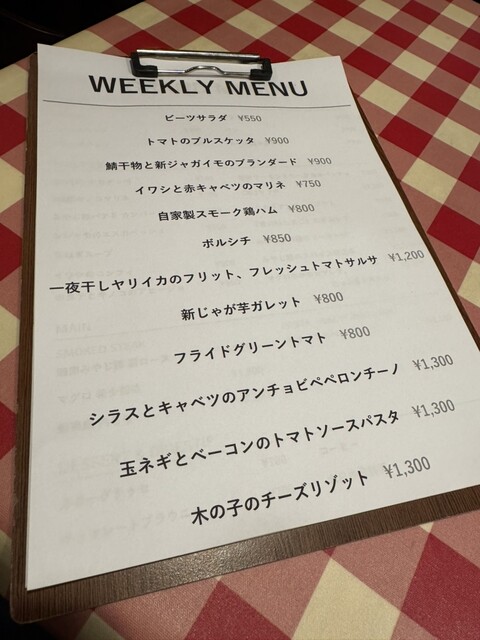 WEEKLY MENU
ビーツサラダ ¥550
トマトのブルスケッタ ¥900
鯖干物と新ジャガイモのブランダード ¥900
イワシと赤キャベツのマリネ ¥750
自家製スモーク鶏ハム ¥800
ボルシチ ¥850
一夜干しヤリイカのフリット、フレッシュトマトサルサ ¥1,200
新じゃが芋ガレット ¥800
フライドグリーントマト ¥800
シラスとキャベツのアンチョビペペロンチーノ ¥1,300
玉ネギとベーコンのトマトソースパスタ ¥1,300
木の子のチーズリゾット ¥1,300